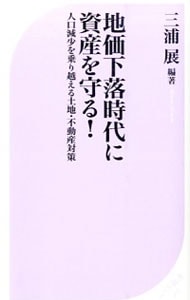 地価下落時代に
資産を守る!
人口減少を乗り越える土地・不動産対策
三浦 展 編著